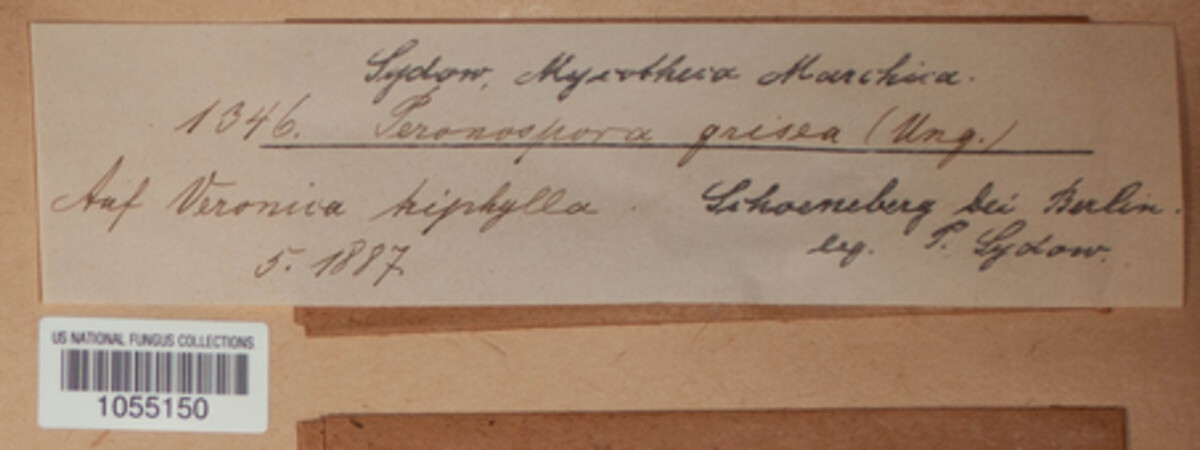 Sydow, Mycotheca Marchica.
1346. Peronospora grisea (Ung.)
Auf Veronica triphylla. Schoeneberg bei Berlin.
5. 1887 leg. P. Sydow.
US NATIONAL FUNGUS COLLECTIONS
1055150